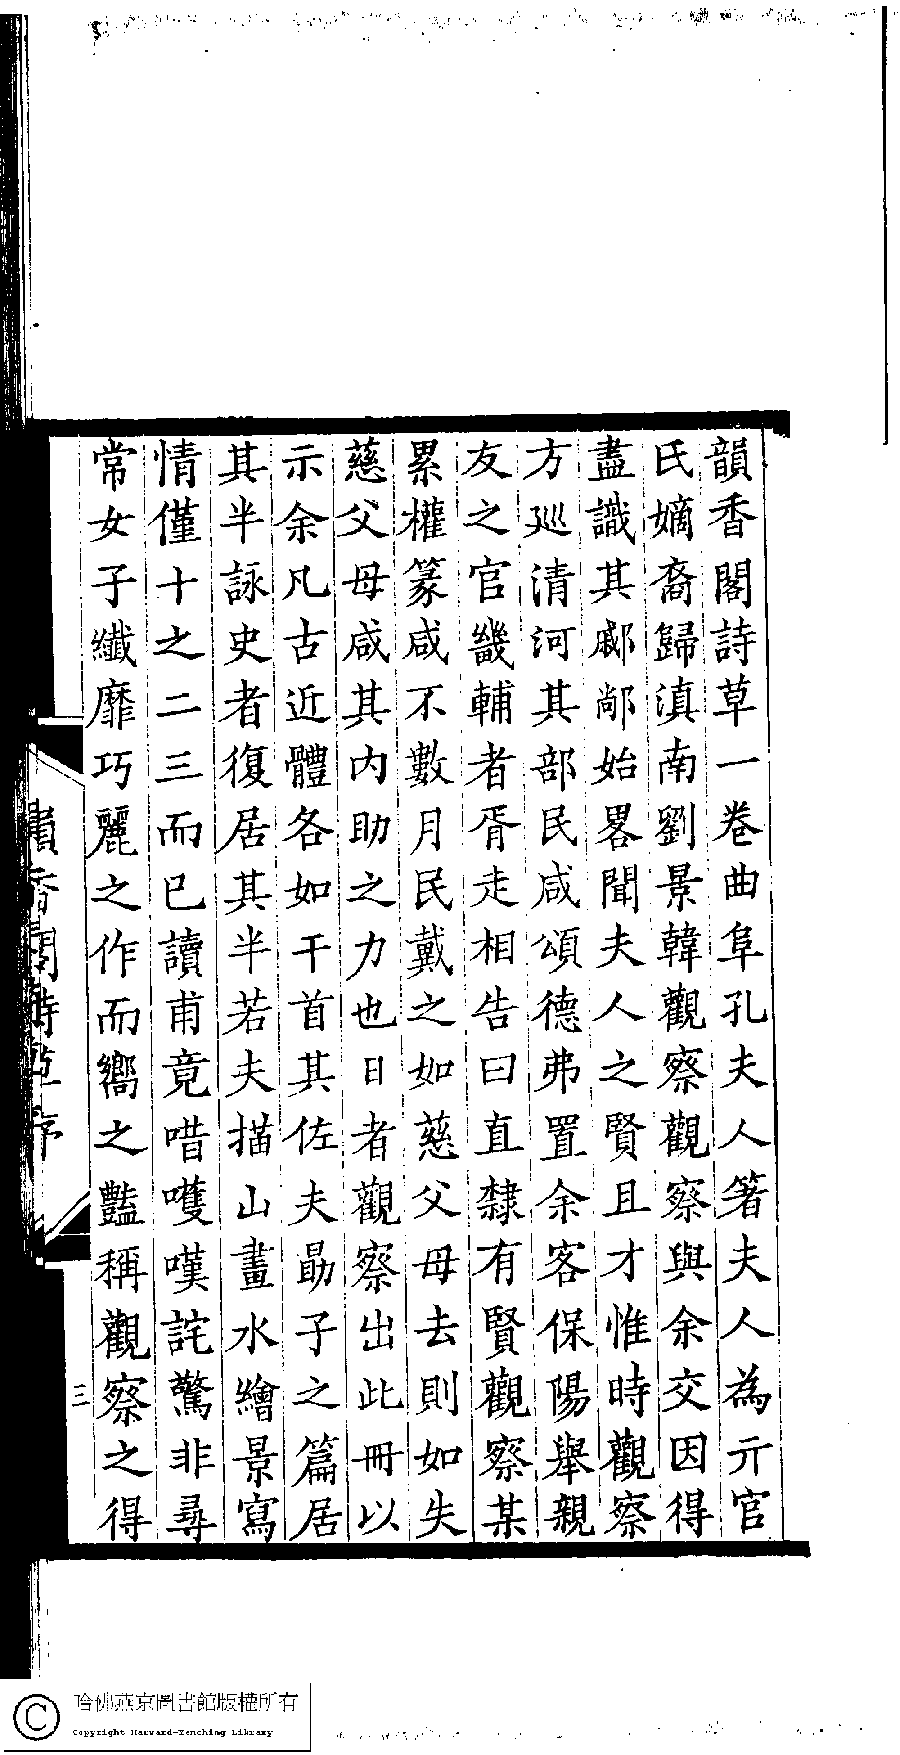 韻香閣詩草一卷曲阜孔夫人箸夫人為亓官
氏嫡裔歸滇南劉景韓觀察觀察與余交因得
盡識其戚鄰始畧聞夫人之賢且才惟時觀察
方巡清河其部民咸頌德弗置余客保陽舉親
友之官畿輔者胥走相告曰直隸有賢觀察某
累權篆咸不數月民戴之如慈父母去則如失
慈父母咸其內助之力也日者觀察出此冊以
示余凡古近體各如干首其佐夫勖子之篇居
其半詠史者復居其半若夫描山畫水繪景寫
情僅十之二三而已讀甫竟唶嚄嘆詫驚非尋
常女子纖靡巧麗之作而嚮之豔稱觀察之得
韻香閣詩草序
三
哈佛燕京圖書館版權所有
Copyright Harvard-Yenching Library